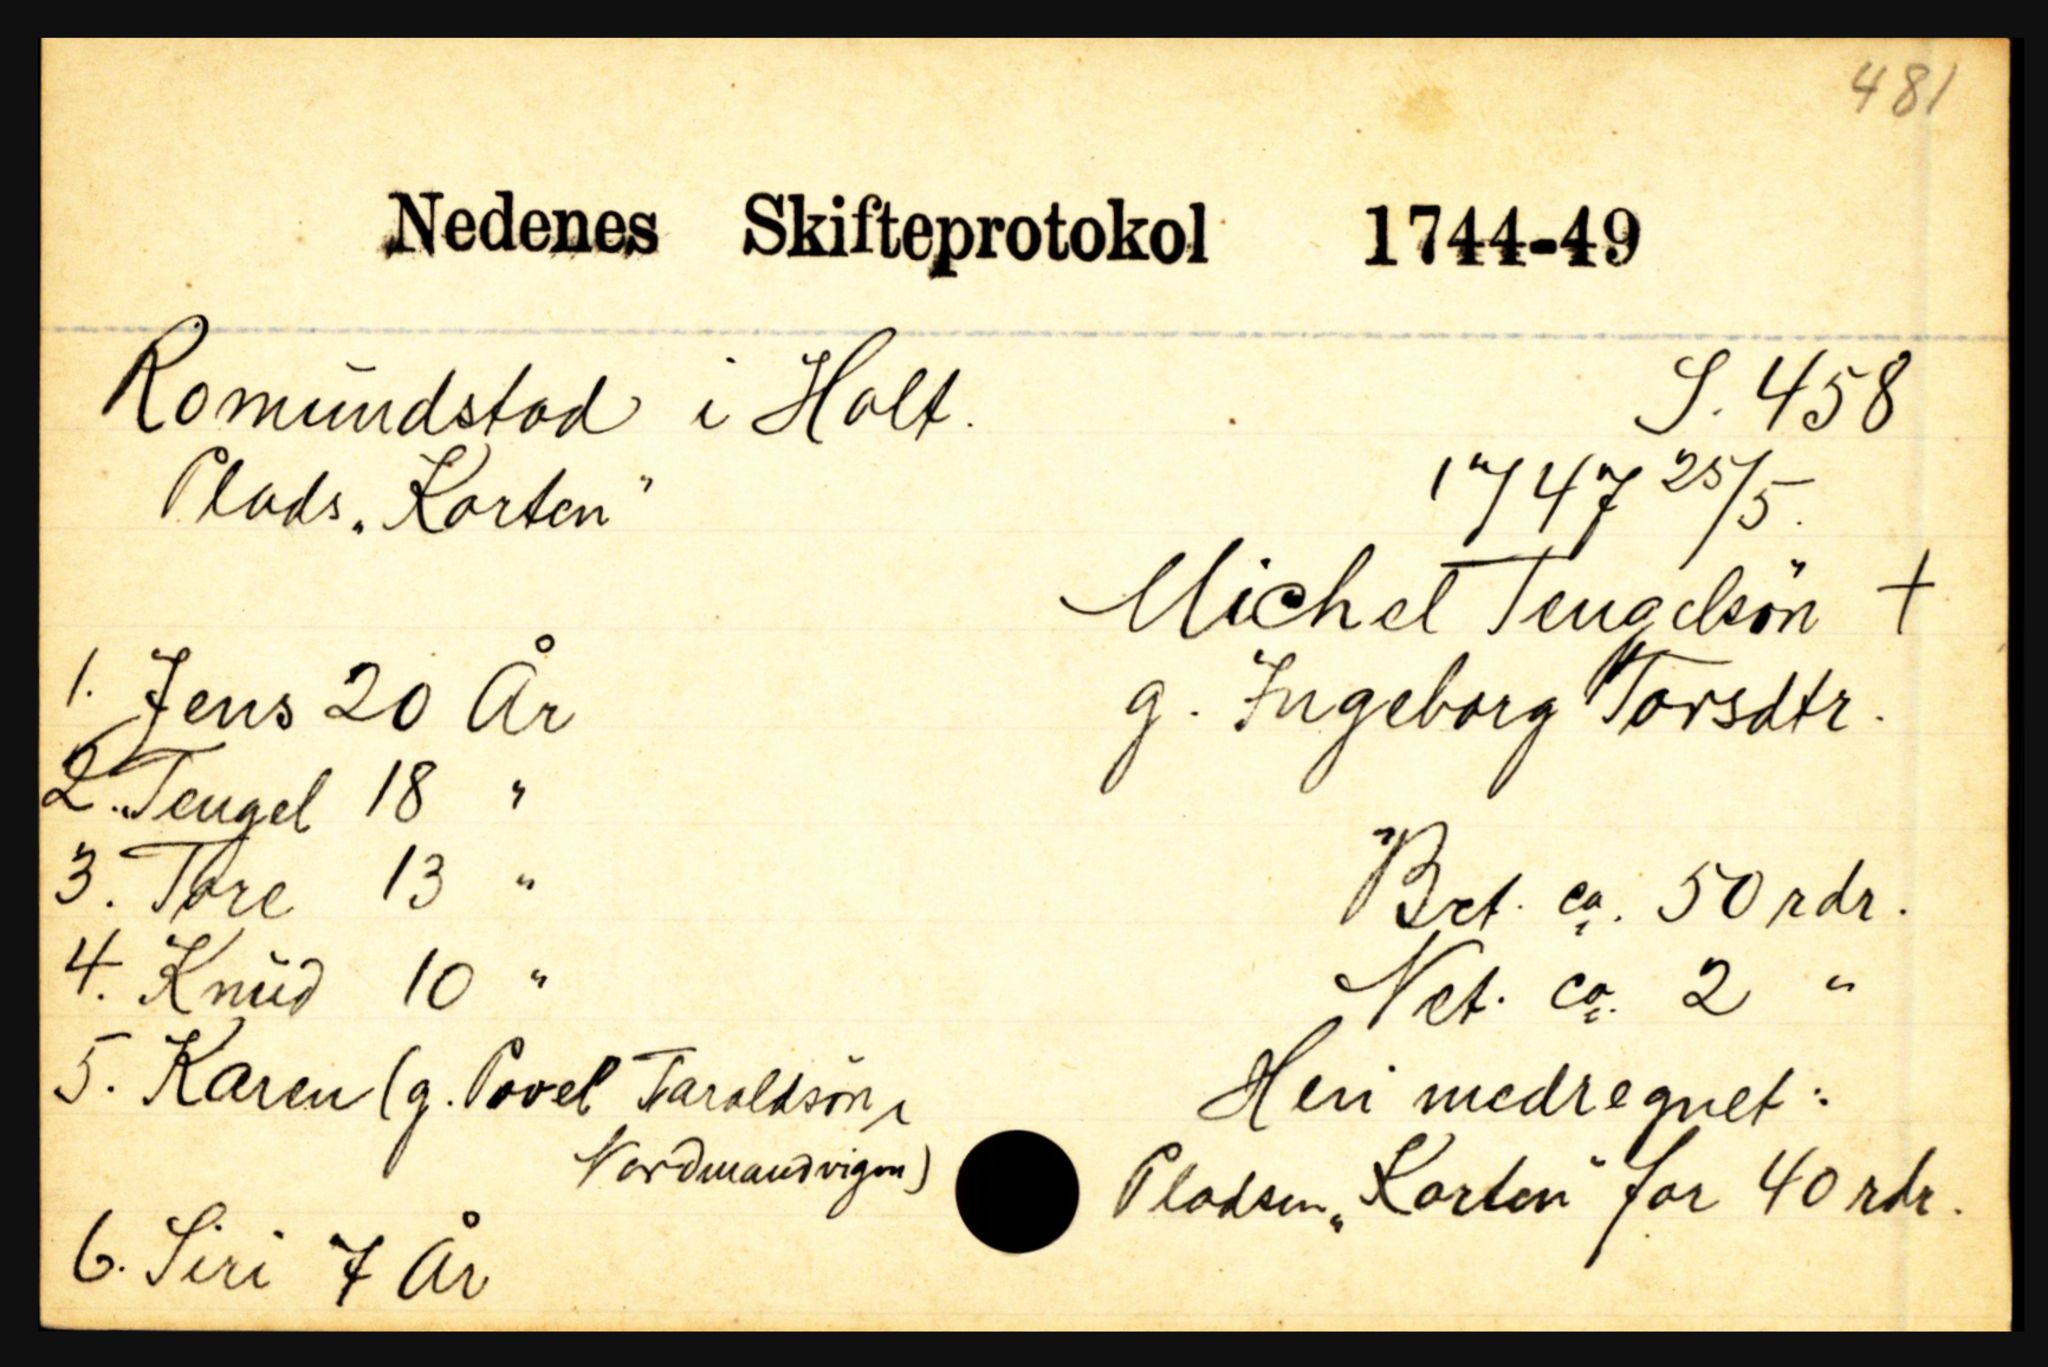 481
Nedenes Skifteprotokol 1744-49
Romŭndstad i Holt.
Plads „Korten"
S. 458
1747 25/5.
Michel Tengelsön +
g. Ingeborg Torsdtr.
1. Jens 20 År
2. Tengel 18 "
3. Tore 13 "
4. Knŭd 10 "
5. Karen (g. Povel Taraldsön,
Nordmandvigen)
6. Siri 7 År
Bet. ca. 50 rdr.
Net. ca. 2 "
Heri medregnet:
Pladsen „Korten" for 40 rdr.